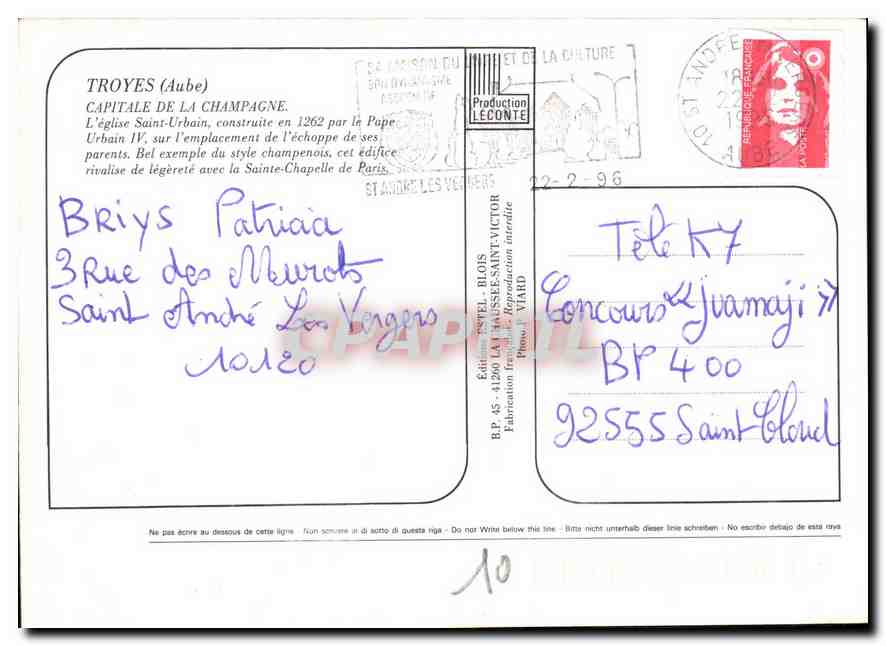 TROYES (Aube)
CAPITALE DE LA CHAMPAGNE.
L'église Saint-Urbain, construite en 1262 par le Pape
Urbain IV, sur l'emplacement de l'échoppe de ses
parents. Bel exemple du style champenois, cet édifice
rivalise de légèreté avec la Sainte-Chapelle de Paris.
SA MAISON DU ET DE LA CULTURE
SON DYNAMISME
ASSOCIATIF
ST ANDRE LES VERGERS 22-2-96
Production
LECONTE
10 ST ANDRE
18
22
19
AUBE
REPUBLIQUE FRANÇAISE
LA POSTE
BRIYS Patricia
3 Rue des Meurots
Saint André Les Vergers
10120
Éditions ESTEL - BLOIS
B.P. 45 - 41260 LA CHAUSSÉE-SAINT-VICTOR
Fabrication française. Reproduction interdite
Photo P. VIARD
Télé K7
Concours « Juamaji »
BP 400
92555 Saint-Cloud
CPAPHIL
Ne pas écrire au dessous de cette ligne - Non scrivere al di sotto di questa riga - Do not Write below this line - Bitte nicht unterhalb dieser linie schreiben - No escribir debajo de esta raya
10